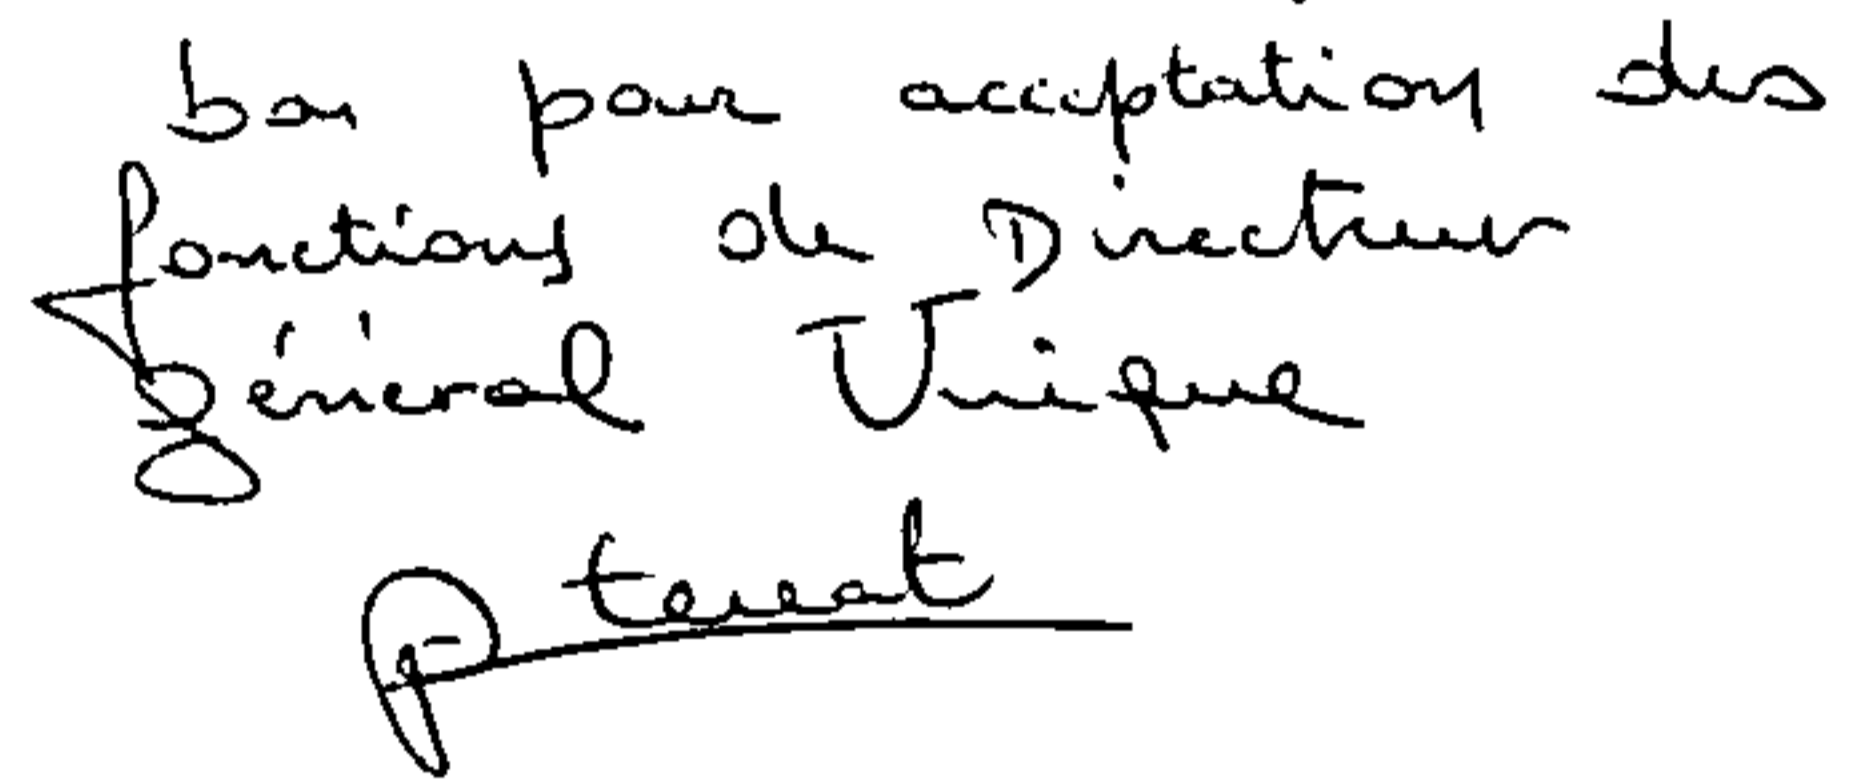 bon pour acceptation des
fonctions de Directeur
général Unique